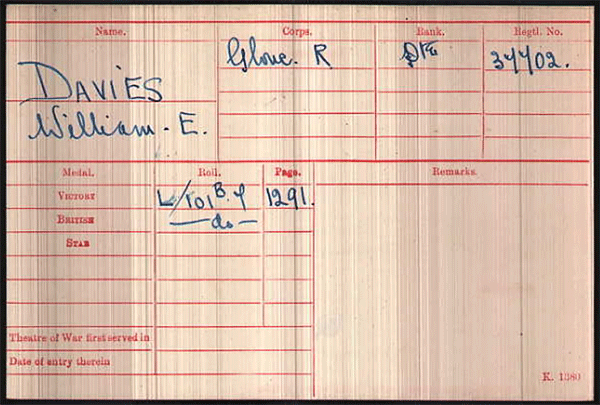 Name. Corps. Rank. Regtl. No.
DAVIES Glouc. R Pte 37702.
William. E.
Medal. Roll. Page. Remarks.
VICTORY L/101 B. 9 1291.
BRITISH —do—
STAR
Theatre of War first served in
Date of entry therein
K. 1380